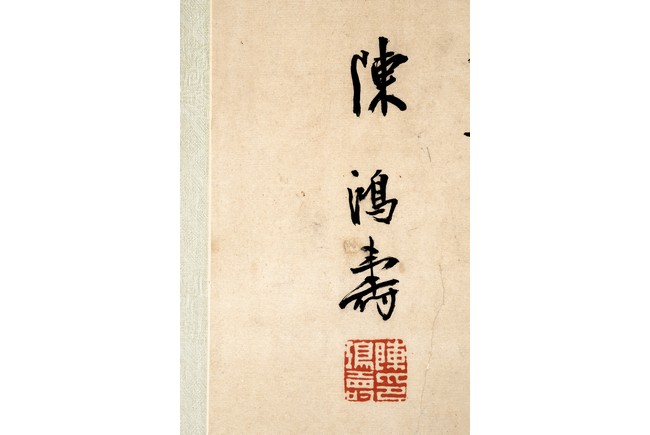 陳鴻壽
陳印
鴻壽